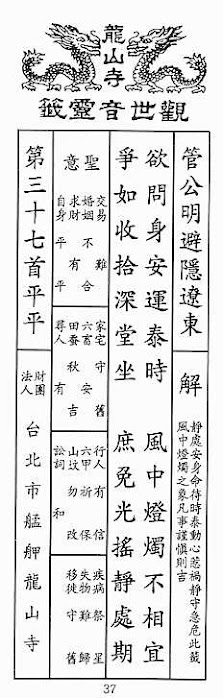 龍山寺
觀世音靈籤
管公明避隱遼東
解
靜處安身命待時泰動心惹禍靜守急危此籤
風中燈燭之象凡事謹慎則吉
欲問身安運泰時 風中燈燭不相宜
爭如收拾深堂坐 庶免光搖靜處期
聖意
交易 難
婚姻 不合
求財 有
自身 平平
家宅 守舊
六畜 安
田蠶 吉
尋人 有
行人 有信
六甲 祈保
山墳 勿改
訟詞 和
疾病 祭星
失物 難歸
移徙 守舊
第三十七首平平
財團法人 台北市艋舺龍山寺
37